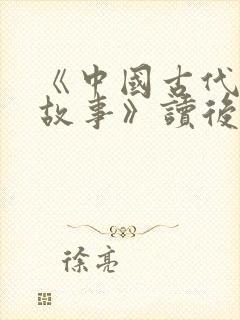 《中國古代
故事》讀後
徐亮